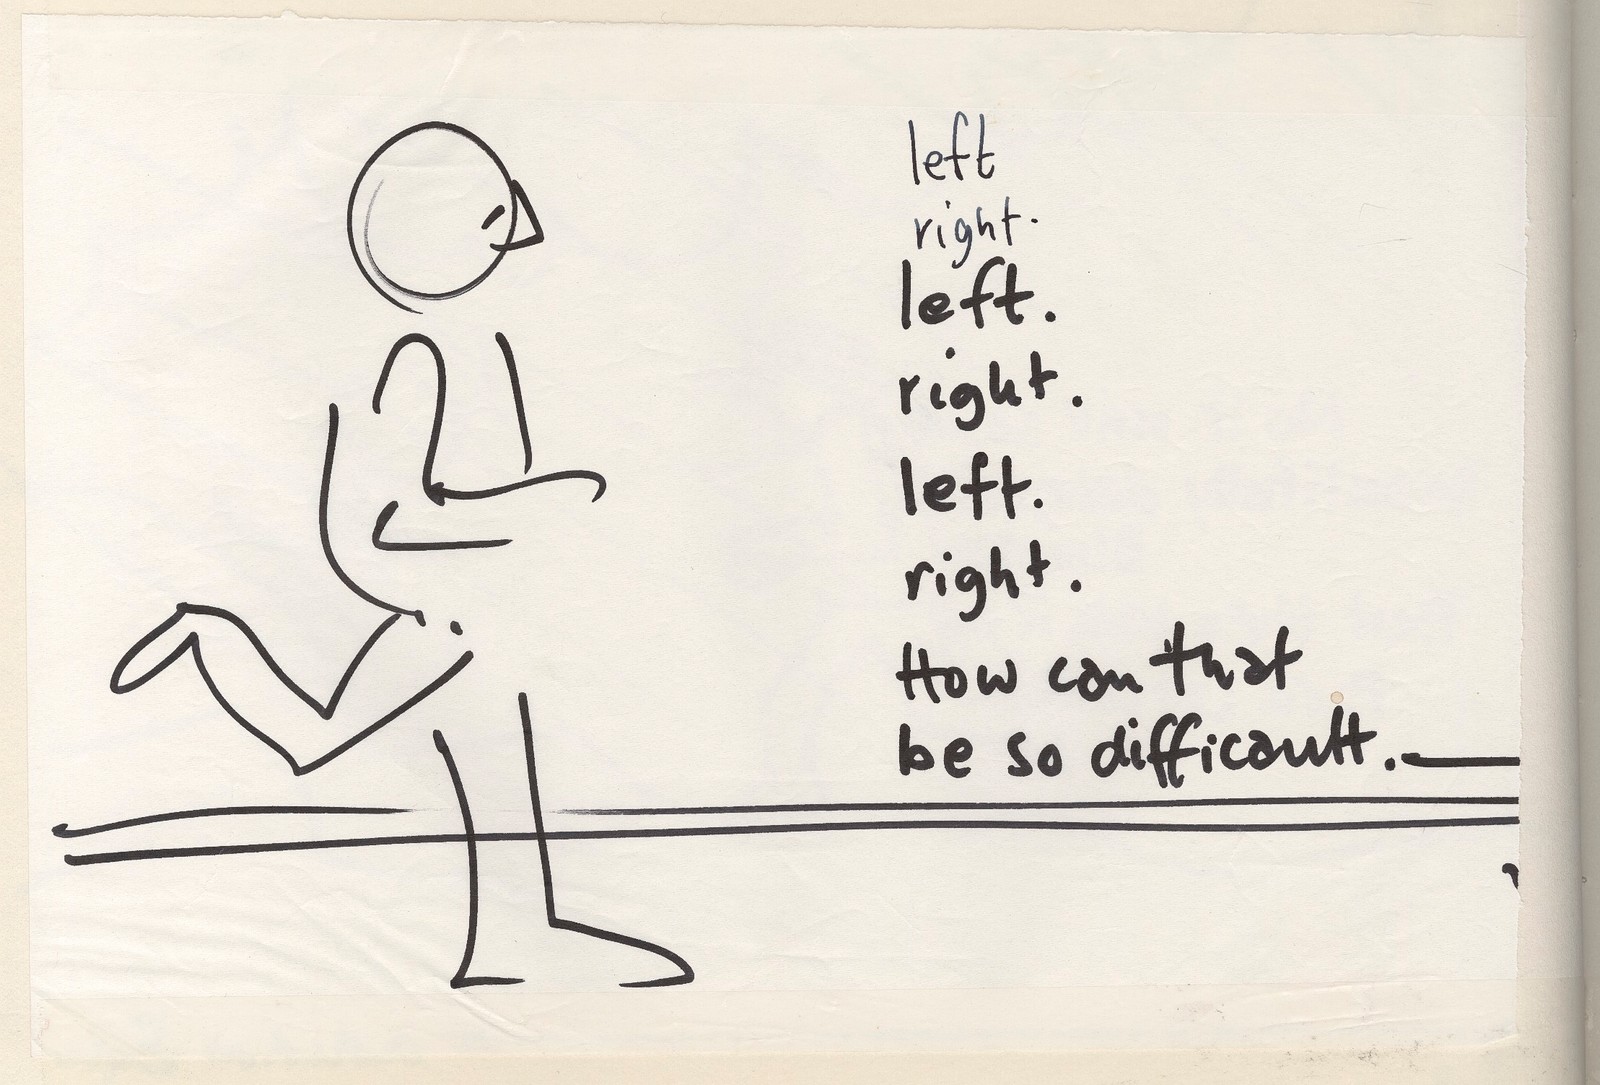 left
right.
left.
right.
left.
right.
How can that
be so difficault.